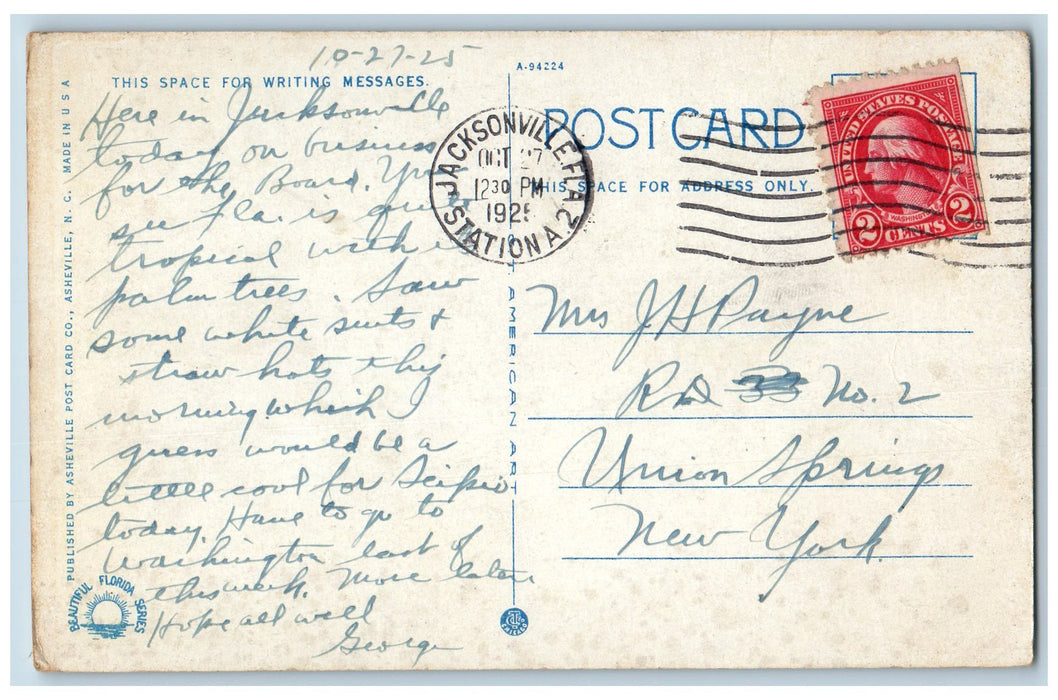 10-27-25
THIS SPACE FOR WRITING MESSAGES.
Here in Jacksonville
today on business
for the Board. You
in Fla. is quite
tropical with
palm trees. Saw
some white suits &
straw hats this
morning which
guess would be a
little cool for Scipio
today. Have to go to
Washington last of
this week. More later
Hope all well
George
PUBLISHED BY ASHEVILLE POST CARD CO., ASHEVILLE, N.C. MADE IN U S A
BEAUTIFUL FLORIDA SERIES
A-94224
POST CARD
THIS SPACE FOR ADDRESS ONLY.
JACKSONVILLE, FLA.
OCT 27
12 30 PM
1925
STATION A. 2
UNITED STATES POSTAGE
WASHINGTON
2 CENTS 2
AMERICAN ART
Mrs J H Payne
RD 33 No. 2
Union Springs
New York.
CHICAGO